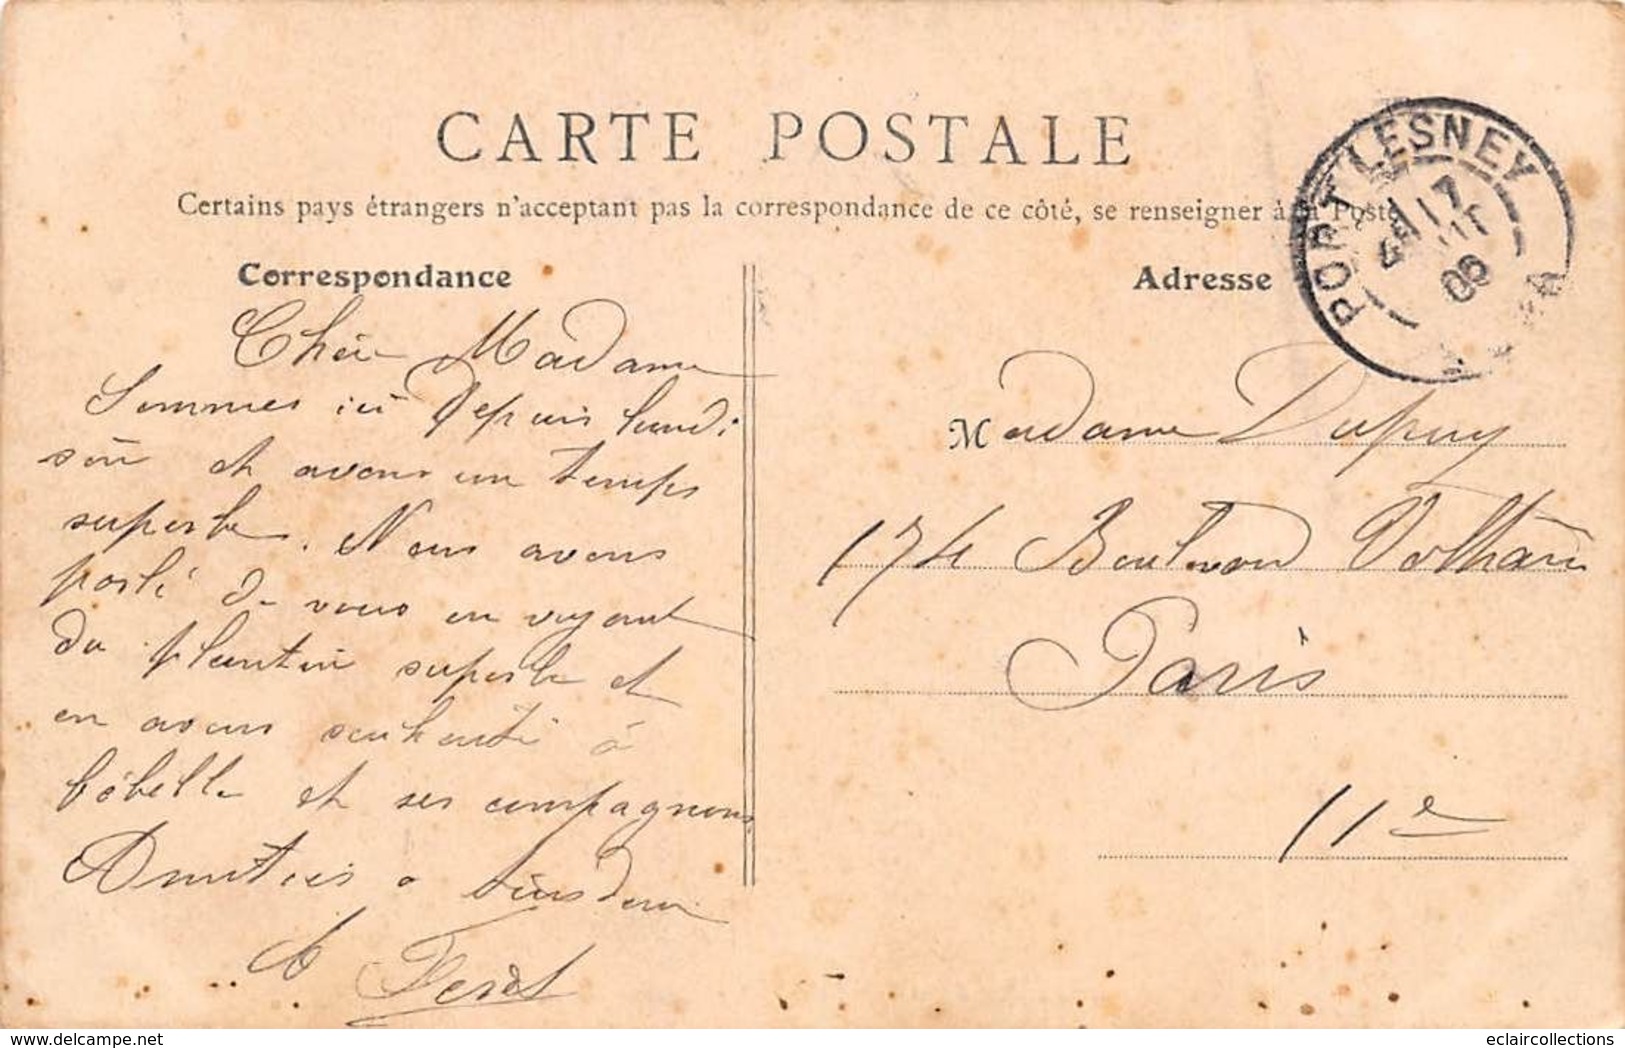 CARTE POSTALE
Certains pays étrangers n'acceptant pas la correspondance de ce côté, se renseigner à la Poste
Correspondance
Chère Madame
Sommes ici depuis lundi
soir et avons un temps
superbe. Nous avons
parlé de vous en voyant
du plantin superbe et
en avons souhaité à
bébelle et ses compagnons
Amitiés à tous deux
Adresse
PORT-LESNEY
4E 17
08
JURA
Madame Dupuy
174 Boulevard Voltaire
Paris
11e
www.delcampe.net
eclaircollections